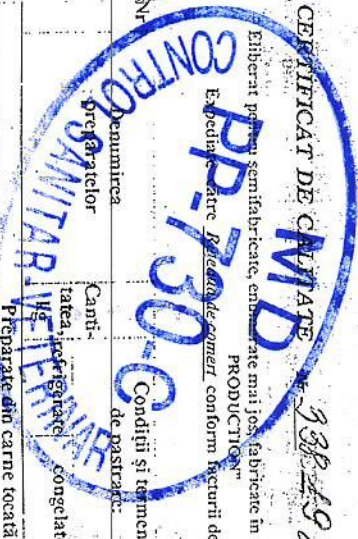 CERTIFICAT DE CALITATE Nr. 338249
Eliberat pentru semifabricate, enumerate mai jos, fabricate în
PRODUCTION"
Expediat către Rețeaua de comerț conform facturii de
Nr
Denumirea
preparatelor
Canti-
tatea,
kg
Condiții și termen
de păstrare:
refrigerare
congelat
Preparate din carne tocată
MD
PP-730-C
CONTROL SANITAR-VETERINAR